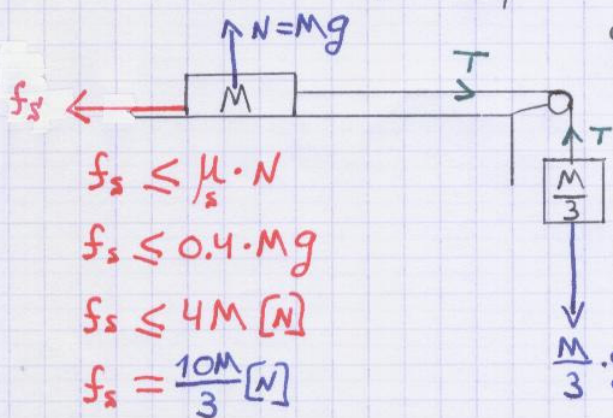 N = Mg
T
fs
M
T
fs ≤ μs · N
M/3
fs ≤ 0.4 · Mg
fs ≤ 4M [N]
fs = 10M/3 [N]
M/3 ·